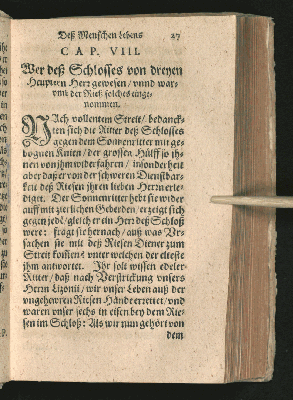 Deß Menschen lebens 27
CAP. VIII.
Wer deß Schlosses von dreyen
Heuptern Herr gewesen / vnnd war-
umb der Rieß solches einge-
nommen.
NAch vollentem Streit / bedanck-
ten sich die Ritter deß Schlosses
gegen dem Sonnenritter mit ge-
bognen Knien / der grossen Hülff so ih-
nen von ihm widerfahren / insonderheit
aber daß er von der schweren Dienstbar-
keit deß Riesen ihren lieben Herrn erle-
diget. Der Sonnenritter hebt sie wider
auff mit zierlichen Geberden / erzeigt sich
gegen jedē / gleich er ein Herr deß Schloß
were: fragt sie hernach / auß was Vr-
sachen sie mit deß Riesen Diener zum
Streit kommen / vnter welchen der elteste
ihm antwortet. Ihr solt wissen edeler
Ritter / daß nach Verstrickung vnsers
Herrn Lizonii / wir vnser Leben auß der
vngehewren Riesen Hände errettet / vnd
waren vnser sechs in eisen bey dem Rie-
sen im Schloß: Als wir nun gehört von
dem